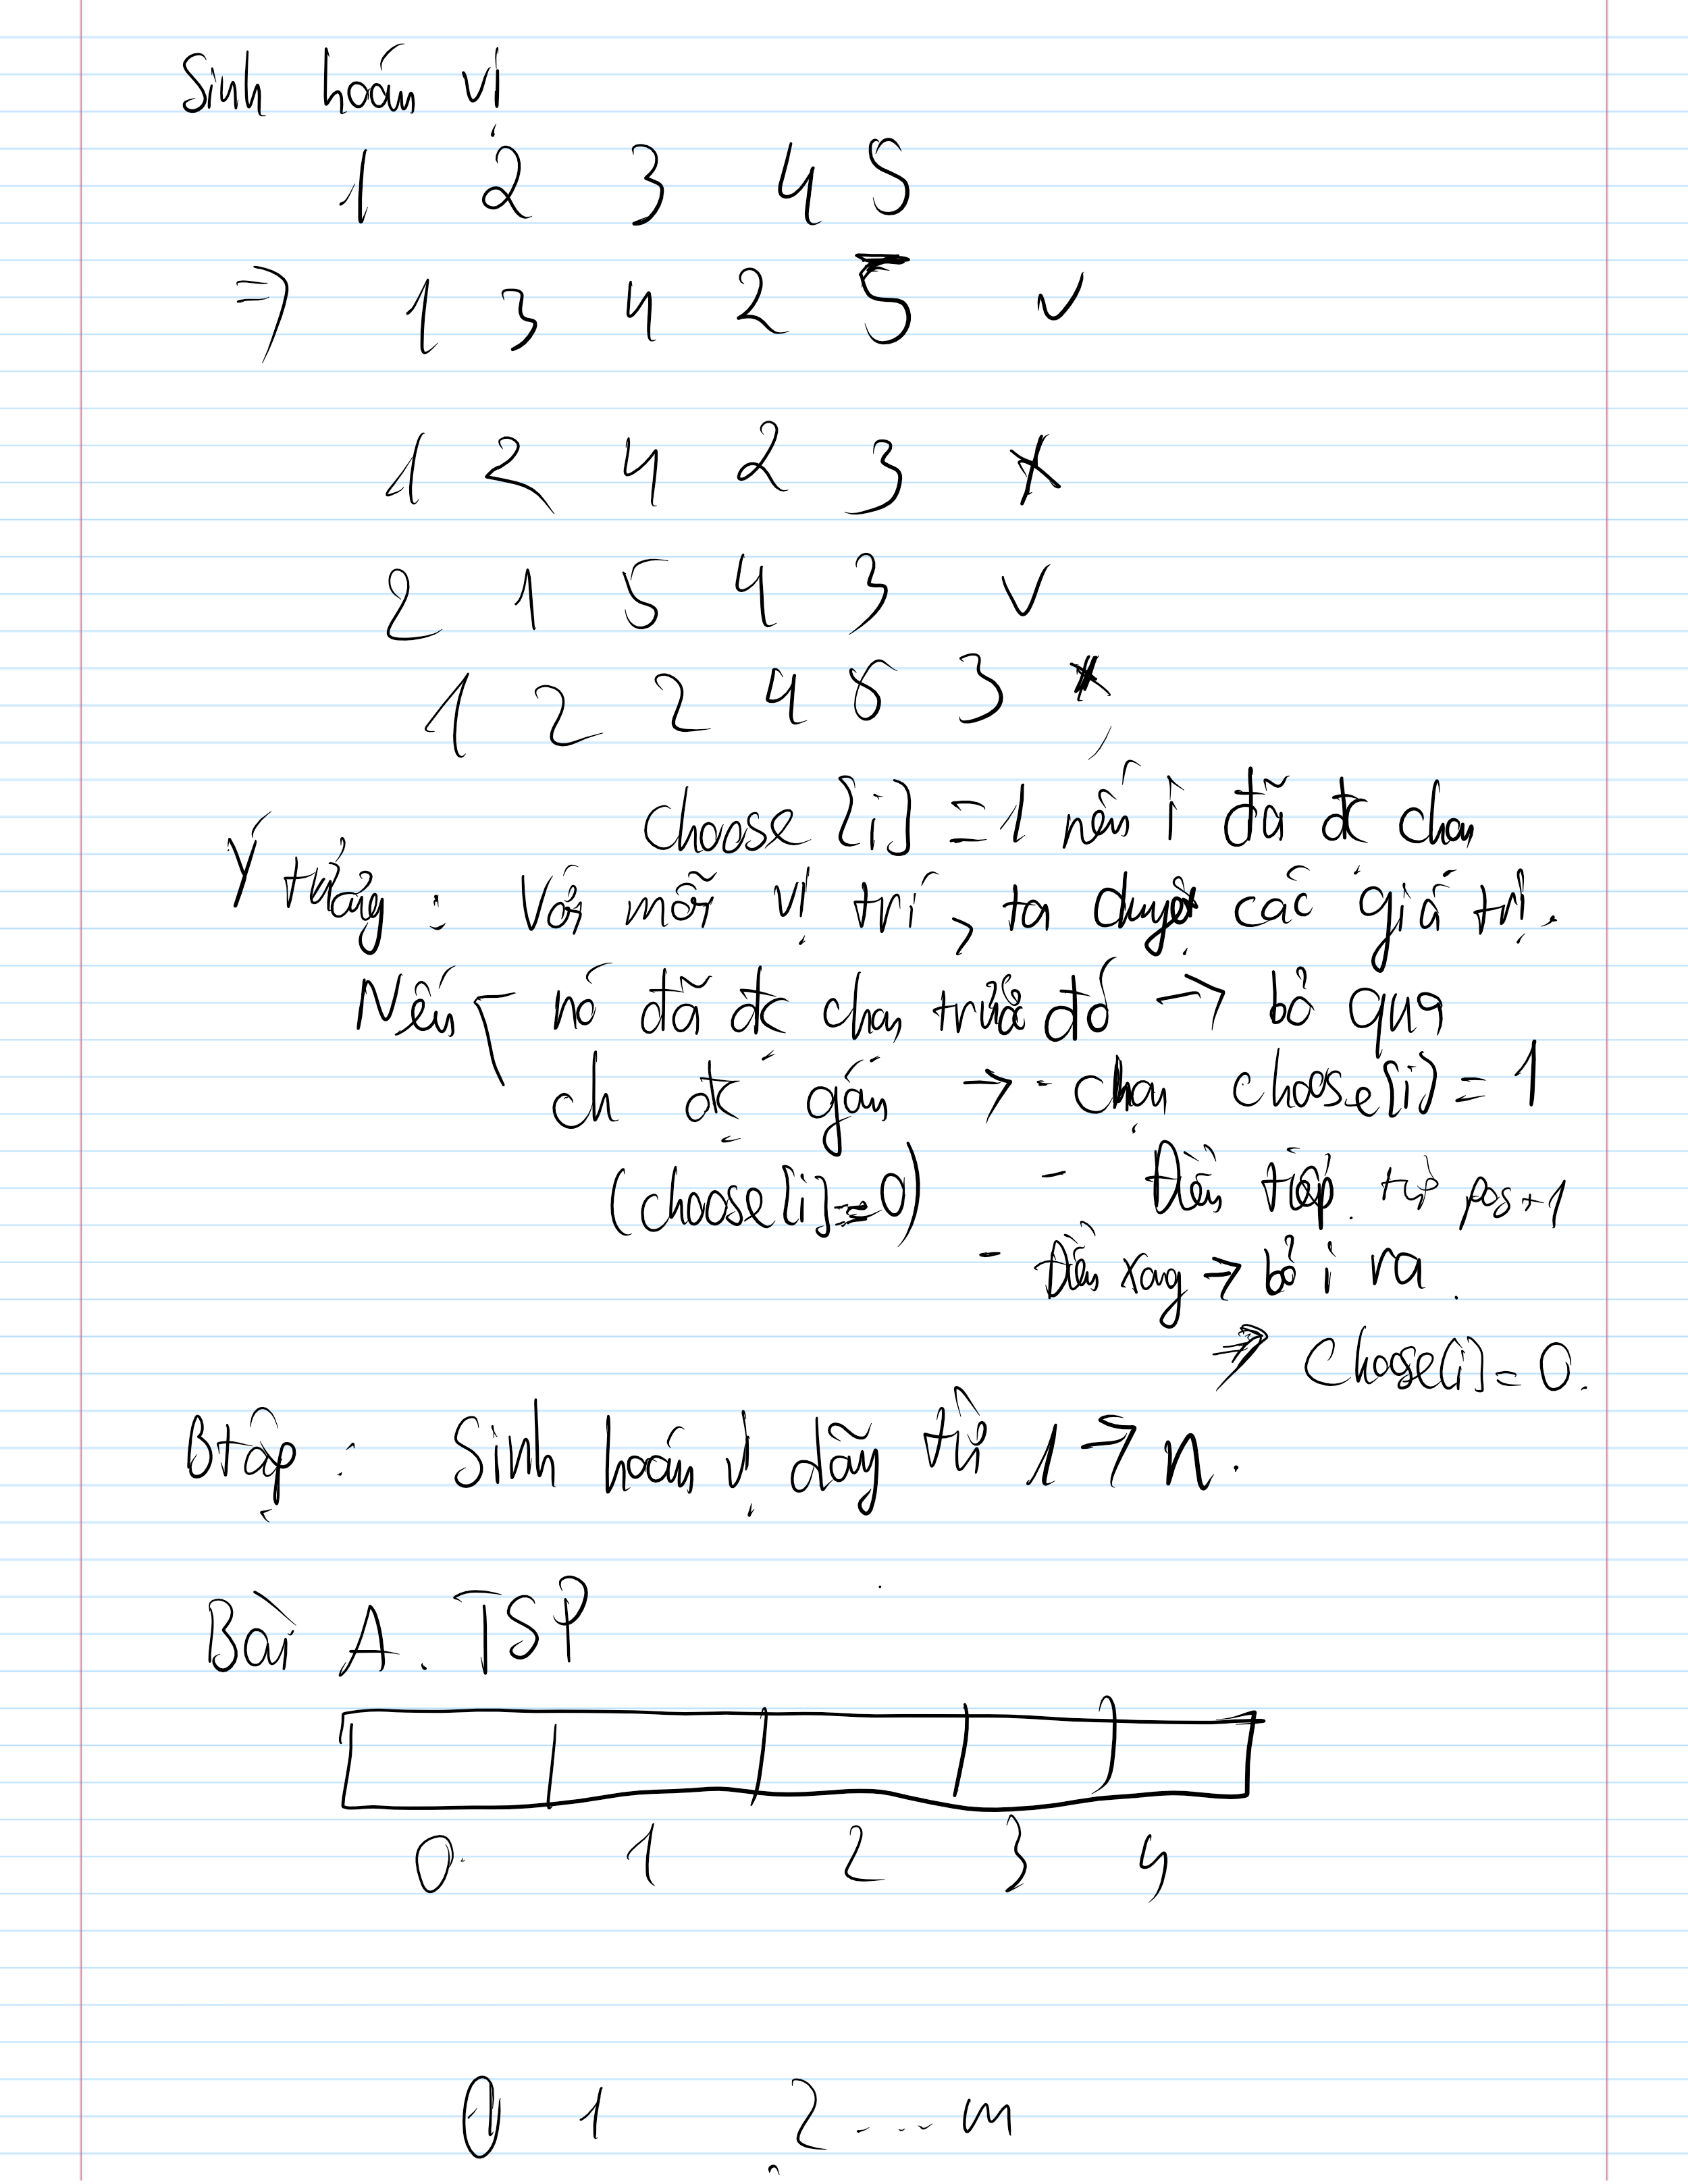 Sinh hoán vị
1 2 3 4 5
⇒ 1 3 4 2 5 ✓
1 2 4 2 3 ✗
2 1 5 4 3 ✓
1 2 2 4 6 3 ✗
choose [i] = 1 nếu i đã đc chọn
Ý tưởng : Với mỗi vị trí, ta duyệt các giá trị.
Nếu nó đã đc chọn trước đó → bỏ qua
ch đc gán → - chọn choose[i] = 1
(choose[i]=0) - Điền tiếp từ pos+1
- Điền xong → bỏ i ra.
⇒ Choose[i] = 0.
Btập : Sinh hoán vị dãy từ 1 → n.
Bài A. TSP
0 1 2 3 4
0 1 2 ... m